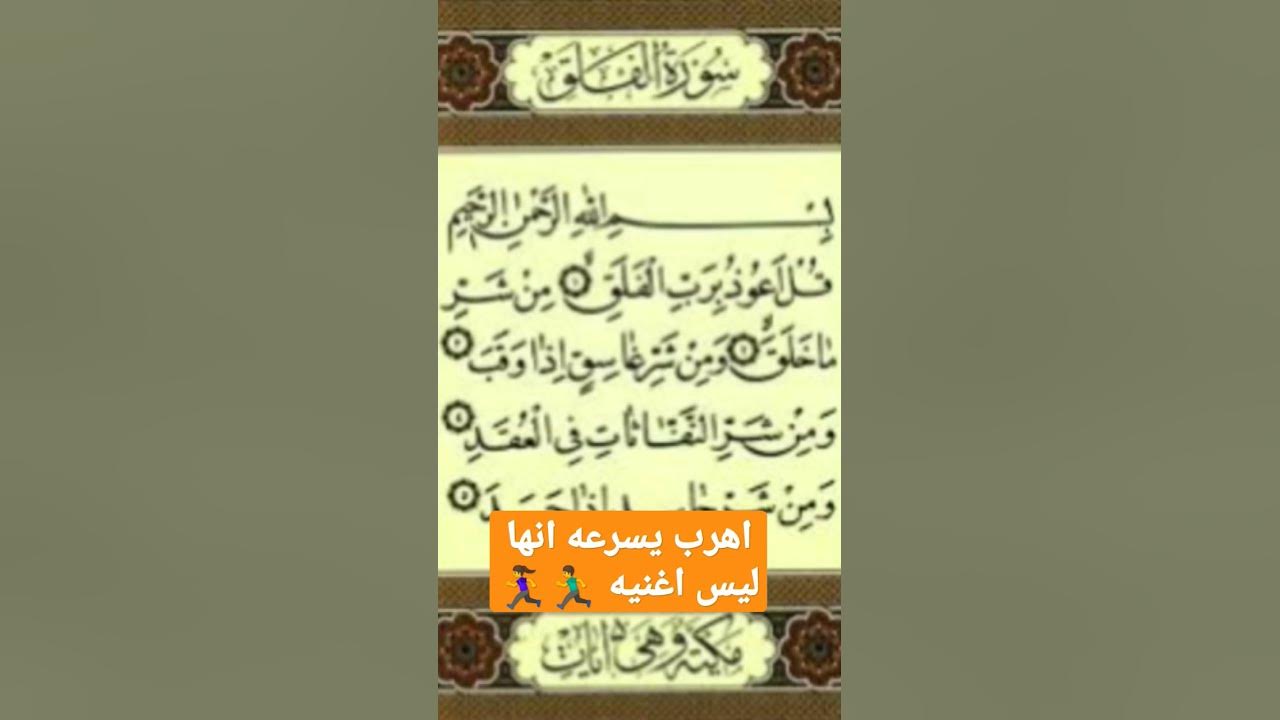 سُورَةُ الْفَلَقِ
بِسْمِ اللهِ الرَّحْمٰنِ الرَّحِيمِ
قُلْ اَعُوذُ بِرَبِّ الْفَلَقِۙ ١ مِنْ شَرِّ
مَا خَلَقَۙ ٢ وَمِنْ شَرِّ غَاسِقٍ اِذَا وَقَبَ ٣
وَمِنْ شَرِّ النَّفَّاثَاتِ فِي الْعُقَدِ ٤
وَمِنْ شَرِّ حَاسِدٍ اِذَا حَسَدَ ٥
اهرب يسرعه انها
ليس اغنيه 🏃‍♂️🏃‍♀️
مَكِّيَّةٌ وَهِيَ ٥ اٰيَاتٍ